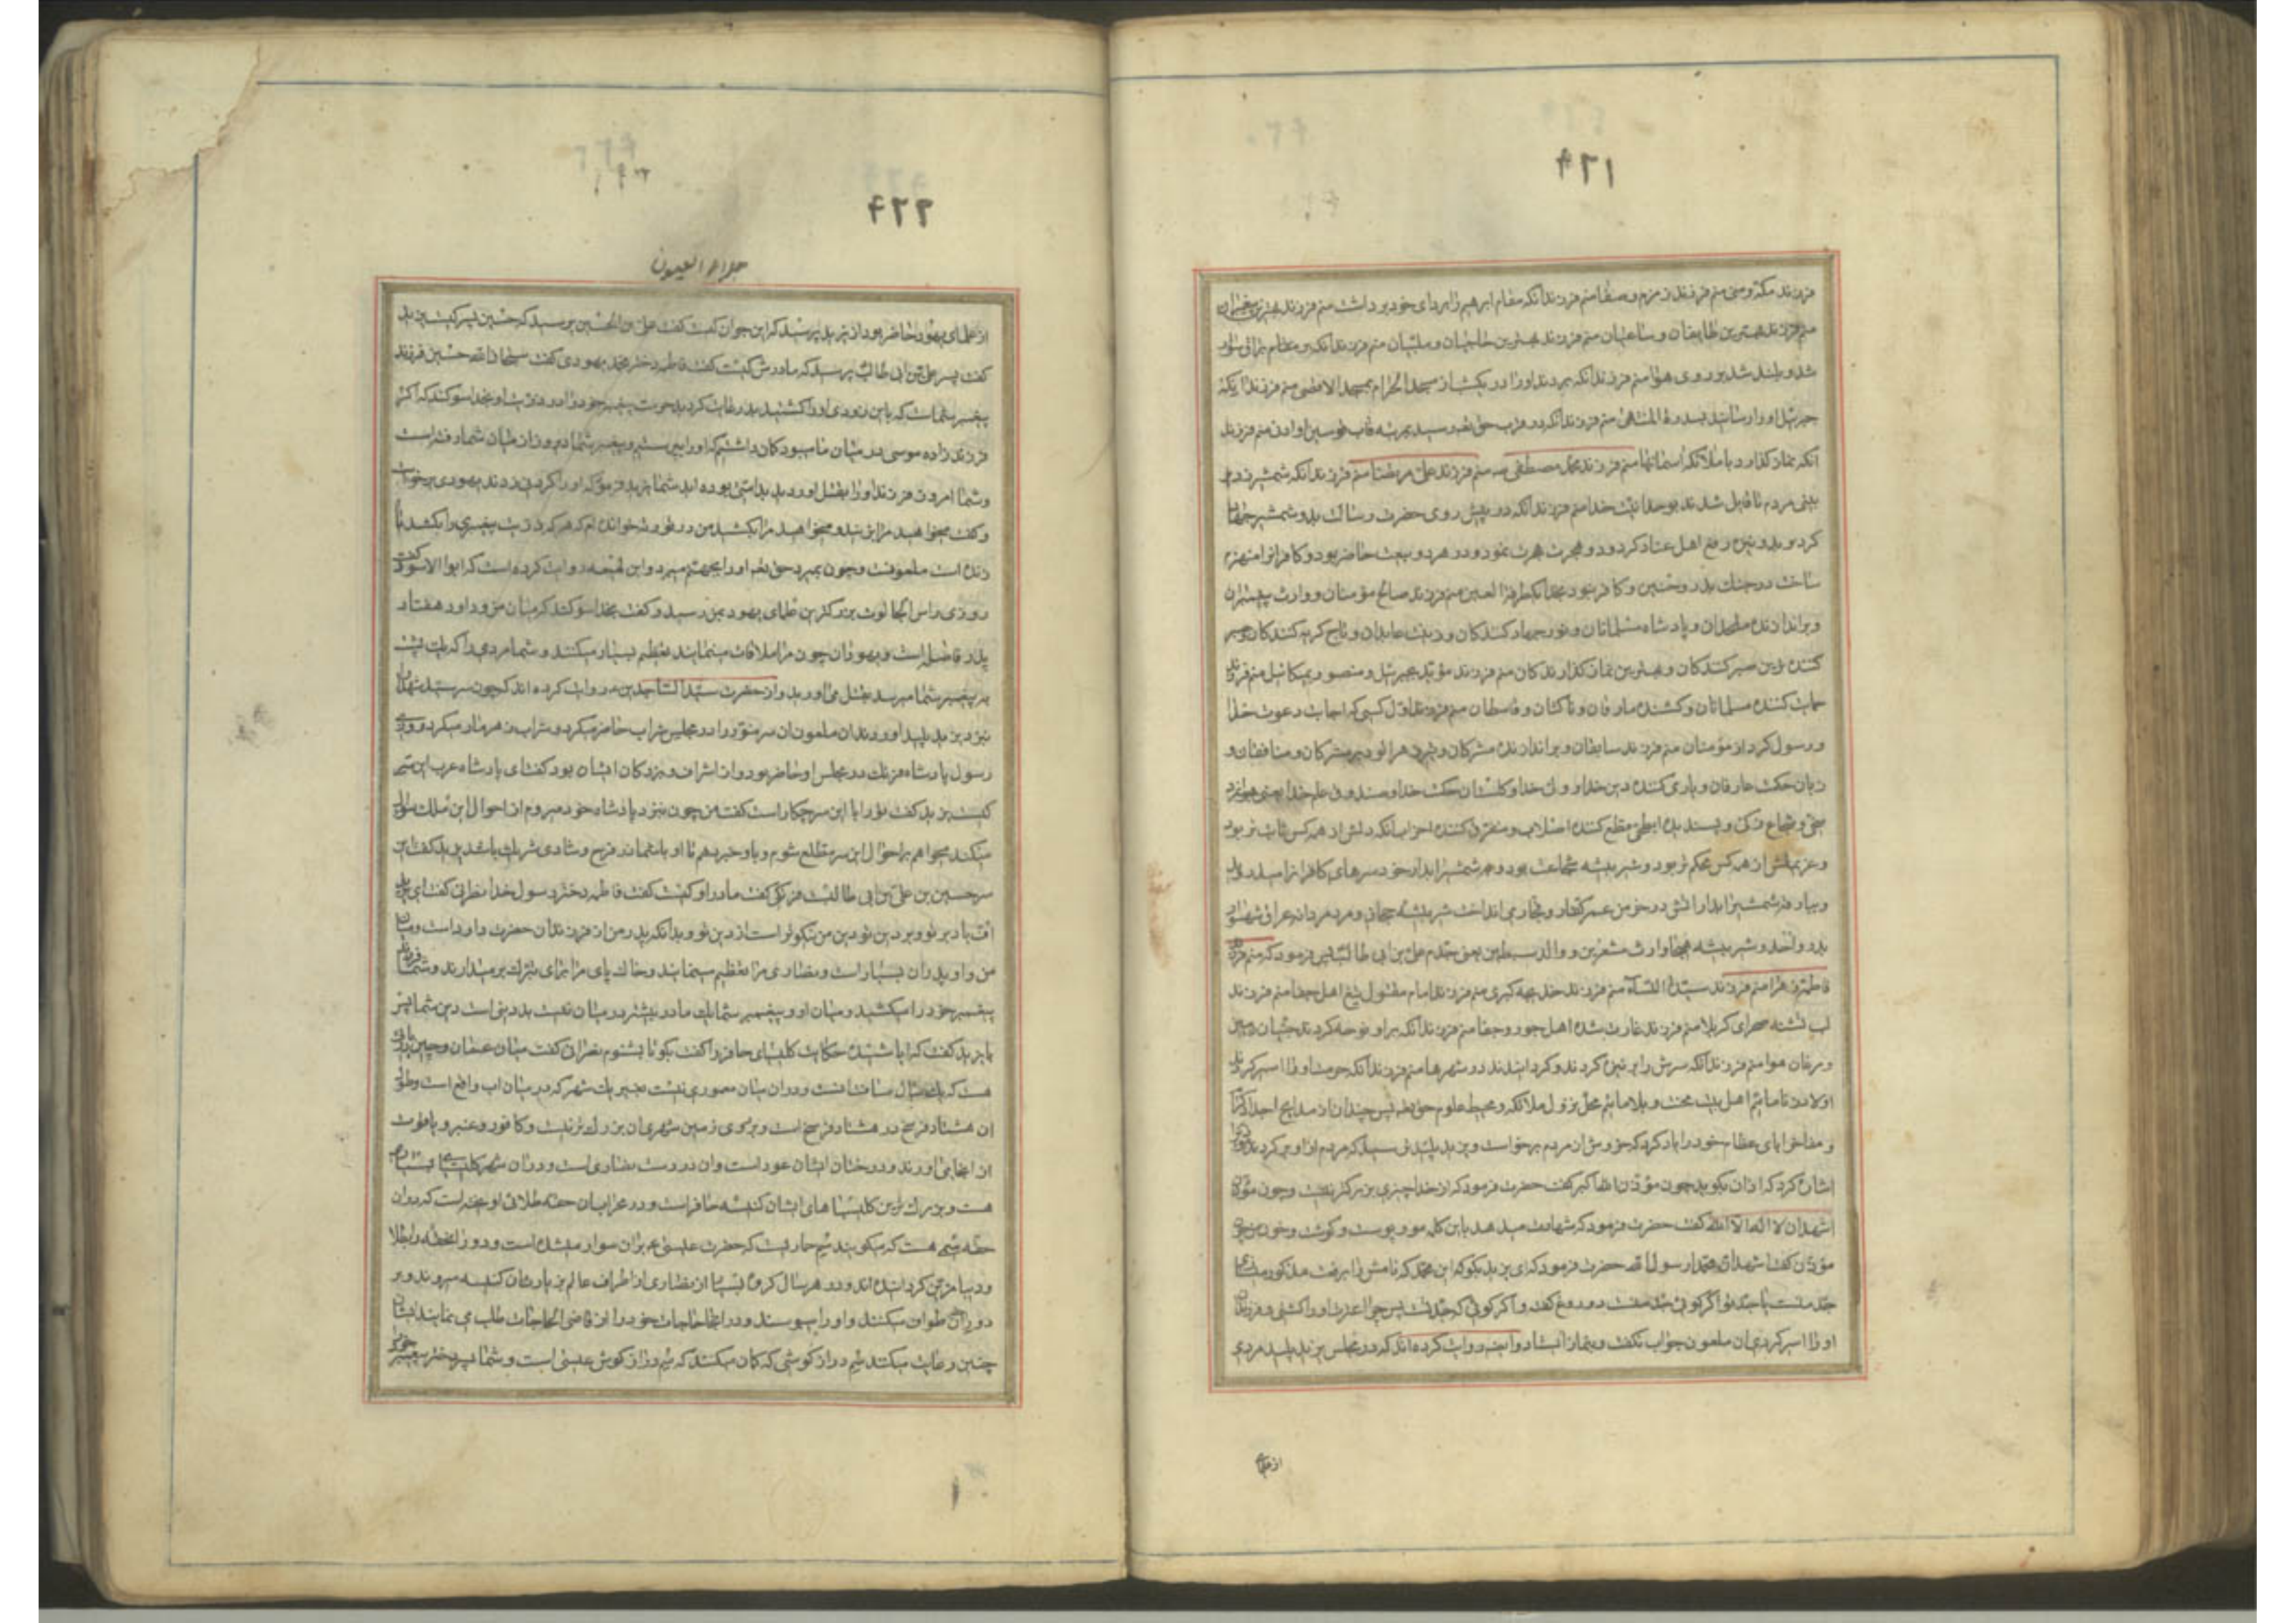 ۴۲۱
فرزند مکه و منی منم فرزند زمزم و صفا منم فرزند آنکه مقام ابرهیم را بردای خود برداشت منم فرزند بهترین پیغمبران
منم فرزند بهترین طایفان و ساعیان منم فرزند بهترین حاجیان و ملبیان منم فرزند آنکه بر مقام براق سوار
شد و بلند شد بر روی هوا منم فرزند آنکه بردند او را در یکشب از مسجد الحرام بمسجد الاقصی منم فرزند آنکه
جبرئیل او را رسانید بسدرة المنتهی منم فرزند آنکه در قرب حق تعه رسید بمرتبه قاب قوسین او ادنی منم فرزند
آنکه نماز گذارد با ملائکه اسمانها منم فرزند محمد مصطفی ص منم فرزند علی مرتضا منم فرزند آنکه شمشیر زد بر
بینی مردم تا قایل شدند بوحدانیت خدا منم فرزند آنکه در پیش روی حضرت رسالت بدو شمشیر جهاد
کرد و بدو نیزه رفع اهل عناد کرد و دو هجرت هجرت نمود و در هر دو بیعت حاضر بود و کافرانرا منهزم
ساخت در جنک بدر و حنین و کافر نبود بخدا یکطرفة العین منم فرزند صالح مؤمنان و وارث پیغمبران
و براندازنده ملحدان و پادشاه مسلمانان و نور جهاد کنندکان و زینت عابدان و تاج کریه کنندکان و صبر
کننده ترین صبر کنندکان و بهترین نماز کذارندکان منم فرزند مؤید بجبرئیل و منصور بمیکائیل منم فرزند
حمایت کننده مسلمانان و کشنده مارقان و ناکثان و قاسطان منم فرزند اول کسی که اجابت دعوت خدا
و رسول کرد از مؤمنان منم فرزند سابقان و براندازنده مشرکان و تیر زهرالود بر مشرکان و منافقان و
زبان حکمت عارفان و یاری کننده دین خدا و ولی خدا و کلستان حکمت خدا و صندوق علم خدا یعنی جوانمرد
سخی و شجاع زکی و پسندیده ابطحی قطع کننده اصلاب و متفرق کننده احزاب آنکه دلش از همه کس ثابت تر بود
و عزیمتش از همه کس محکم تر بود و شیر بیشه شجاعت بود و بهر شمشیر ابدار خود سرهای کافرانرا میدرود
و بباد شمشیر ابدار اتش در خرمن عمر کفار و فجار می انداخت شیر بیشه حجاز و مرد مردانه عراق شهسوار
بدر و احد و شیر بیشه هیجا وارث مشعرین و والد سبطین یعنی جدم علی بن ابی طالب پس فرمود که منم فرزند
فاطمه زهرا منم فرزند سیدة النسآء منم فرزند خدیجه کبری منم فرزند امام مقتول بتیغ اهل جفا منم فرزند
لب تشنه صحرای کربلا منم فرزند غارت شده اهل جور و جفا منم فرزند آنکه بر او نوحه کردند جنیان زمین
و مرغان هوا منم فرزند آنکه سرش را بر نیزه کردند و کردانیدند در شهرها منم فرزند آنکه حرمت او را اسیر کردند
اولاد زنا ماییم اهل بیت محنت و بلا ماییم محل نزول ملائکه و مهبط علوم حق تعه پس چندان از مدایح اجداد کرام
و مفاخر ابای عظام خود را یاد کرد که خروش از مردم برخواست و یزید پلید ترسید که مردم از او برکردند مؤذن را
اشاره کرد که اذان بکوید چون مؤذن الله اکبر کفت حضرت فرمود که از خدا چیزی بزرکتر نیست و چون مؤذن
اشهد ان لا اله الا الله کفت حضرت فرمود که شهادت میدهد باین کلمه مو و پوست و کوشت و خون من چون
مؤذن کفت اشهد ان محمدا رسول الله حضرت فرمود که ای یزید بکو که این محمد که نامش را برفعت مذکور میسازی
جد منست یا جد تو اگر کوئی جد تست دروغ کفته و اگر کوئی که جد منست پس چرا عترت او را کشتی و فرزندان
او را اسیر کردی ان ملعون جواب نکفت و بنماز ایستاد و ایضه روایت کرده اند که در مجلس یزید پلید مردی
از علمای
۴۲۲
جلاء العیون
از علمای یهود حاضر بود از یزید پرسید که این جوان کیست کفت علی بن الحسین پرسید که حسین پسر کیست یزید
کفت پسر علی بن ابی طالب پرسید که مادرش کیست کفت فاطمه دختر محمد یهودی کفت سبحان الله حسین فرزند
پیغمبر شماست که باین زودی او را کشتید بد رعایت کردید حرمت پیغمبر خود را در ذریت او بخدا سوکند که اکر
فرزند زاده موسی در میان ما میبود کمان داشتم که او را می پرستیم و پیغمبر شما دیروز از میان شما رفته است
و شما امروز فرزند او را بقتل اوردید بد امتی بوده اید شما یزید فرمود که او را کردن زدند یهودی برخواست
و کفت میخواهید مرا بزنید و میخواهید مرا بکشید من در توریة خوانده ام که هر که ذریت پیغمبری را بکشد تا
زنده است ملعونست و چون بمیرد حق تعه او را بجهنم میبرد و ابن لهیعه روایت کرده است که ابو الاسود کفت
روزی راس الجالوت بزرکترین علمای یهود بمن رسید و کفت بخدا سوکند که میان من و داود هفتاد
پدر فاصله است و یهودان چون مرا ملاقات مینمایند تعظیم بسیار میکنند و شما مردی را که بیک پشت
به پیغمبر شما میرسد بقتل می اورید و از حضرت سید الساجدین ع روایت کرده اند که چون سر سید شهدا را
نیزد یزید پلید اوردند ان ملعون ان سر منور را در مجلس شراب حاضر میکرد و شراب زهرمار میکرد روزی
رسول پادشاه فرنک در مجلس او حاضر بود و از اشراف و بزرکان ایشان بود کفت ای پادشاه عرب این سر
کیست یزید کفت تو را با این سر چکار است کفت من چون بنزد پادشاه خود میروم از احوال این ملک سؤال
میکند میخواهم بر احوال این سر مطلع شوم و باو خبر دهم تا او با شما در فرح و شادی شریک باشد یزید کفت این
سر حسین بن علی بن ابی طالبست فرنکی کفت مادر او کیست کفت فاطمه دختر رسول خدا نصرانی کفت ای یزید
اف باد بر تو و بر دین تو دین من نیکوتر است از دین تو و بدانکه پدر من از فرزندان حضرت داود است و میان
من و او پدران بسیار است و نصاری مرا تعظیم مینمایند و خاک پای مرا برای تبرک بر میدارند و شما فرزند
پیغمبر خود را میکشید و میان او و پیغمبر شما یک مادر بیشتر در میان نیست بد دینی است دین شما پس
با یزید کفت که ایا شنیده حکایت کلیسای حافر را کفت بکو تا بشنوم نصرانی کفت میان عمان و چین دریائی
هست که یک سال مسافتست و در ان میان معموری نیست بغیر یک شهر که در میان اب واقع است و طول
ان هشتاد فرسخ در هشتاد فرسخ است و بر روی زمین شهری ان بزرک تر نیست و کافور و عنبر و یاقوت
از انجا می اورند و درختان ایشان عود است و ان در دست نصاری است و در ان شهر کلیسای بسیار
هست و بزرک ترین کلیسیاهای ایشان کنیسه حافر است و در محراب ان حقه طلائی اویخته است که در ان
حقه سُمی هست که میکویند سُم حماریست که حضرت عیسی ع بران سوار میشده است و دور ان حقه را بطلا
و دیبا مزین کردانیده اند و در هر سال کروه بسیار از نصاری از اطراف عالم بزیارت ان کنیسه میروند و بر
دور ان طواف میکنند و او را میبوسند و در انجا حاجات خود را از قاضی الحاجات طلب می نمایند ایشان
چنین رعایت میکنند سُم دراز کوشی که کمان میکنند که سُم دراز کوش عیسی است و شما پسر دختر پیغمبر خود را